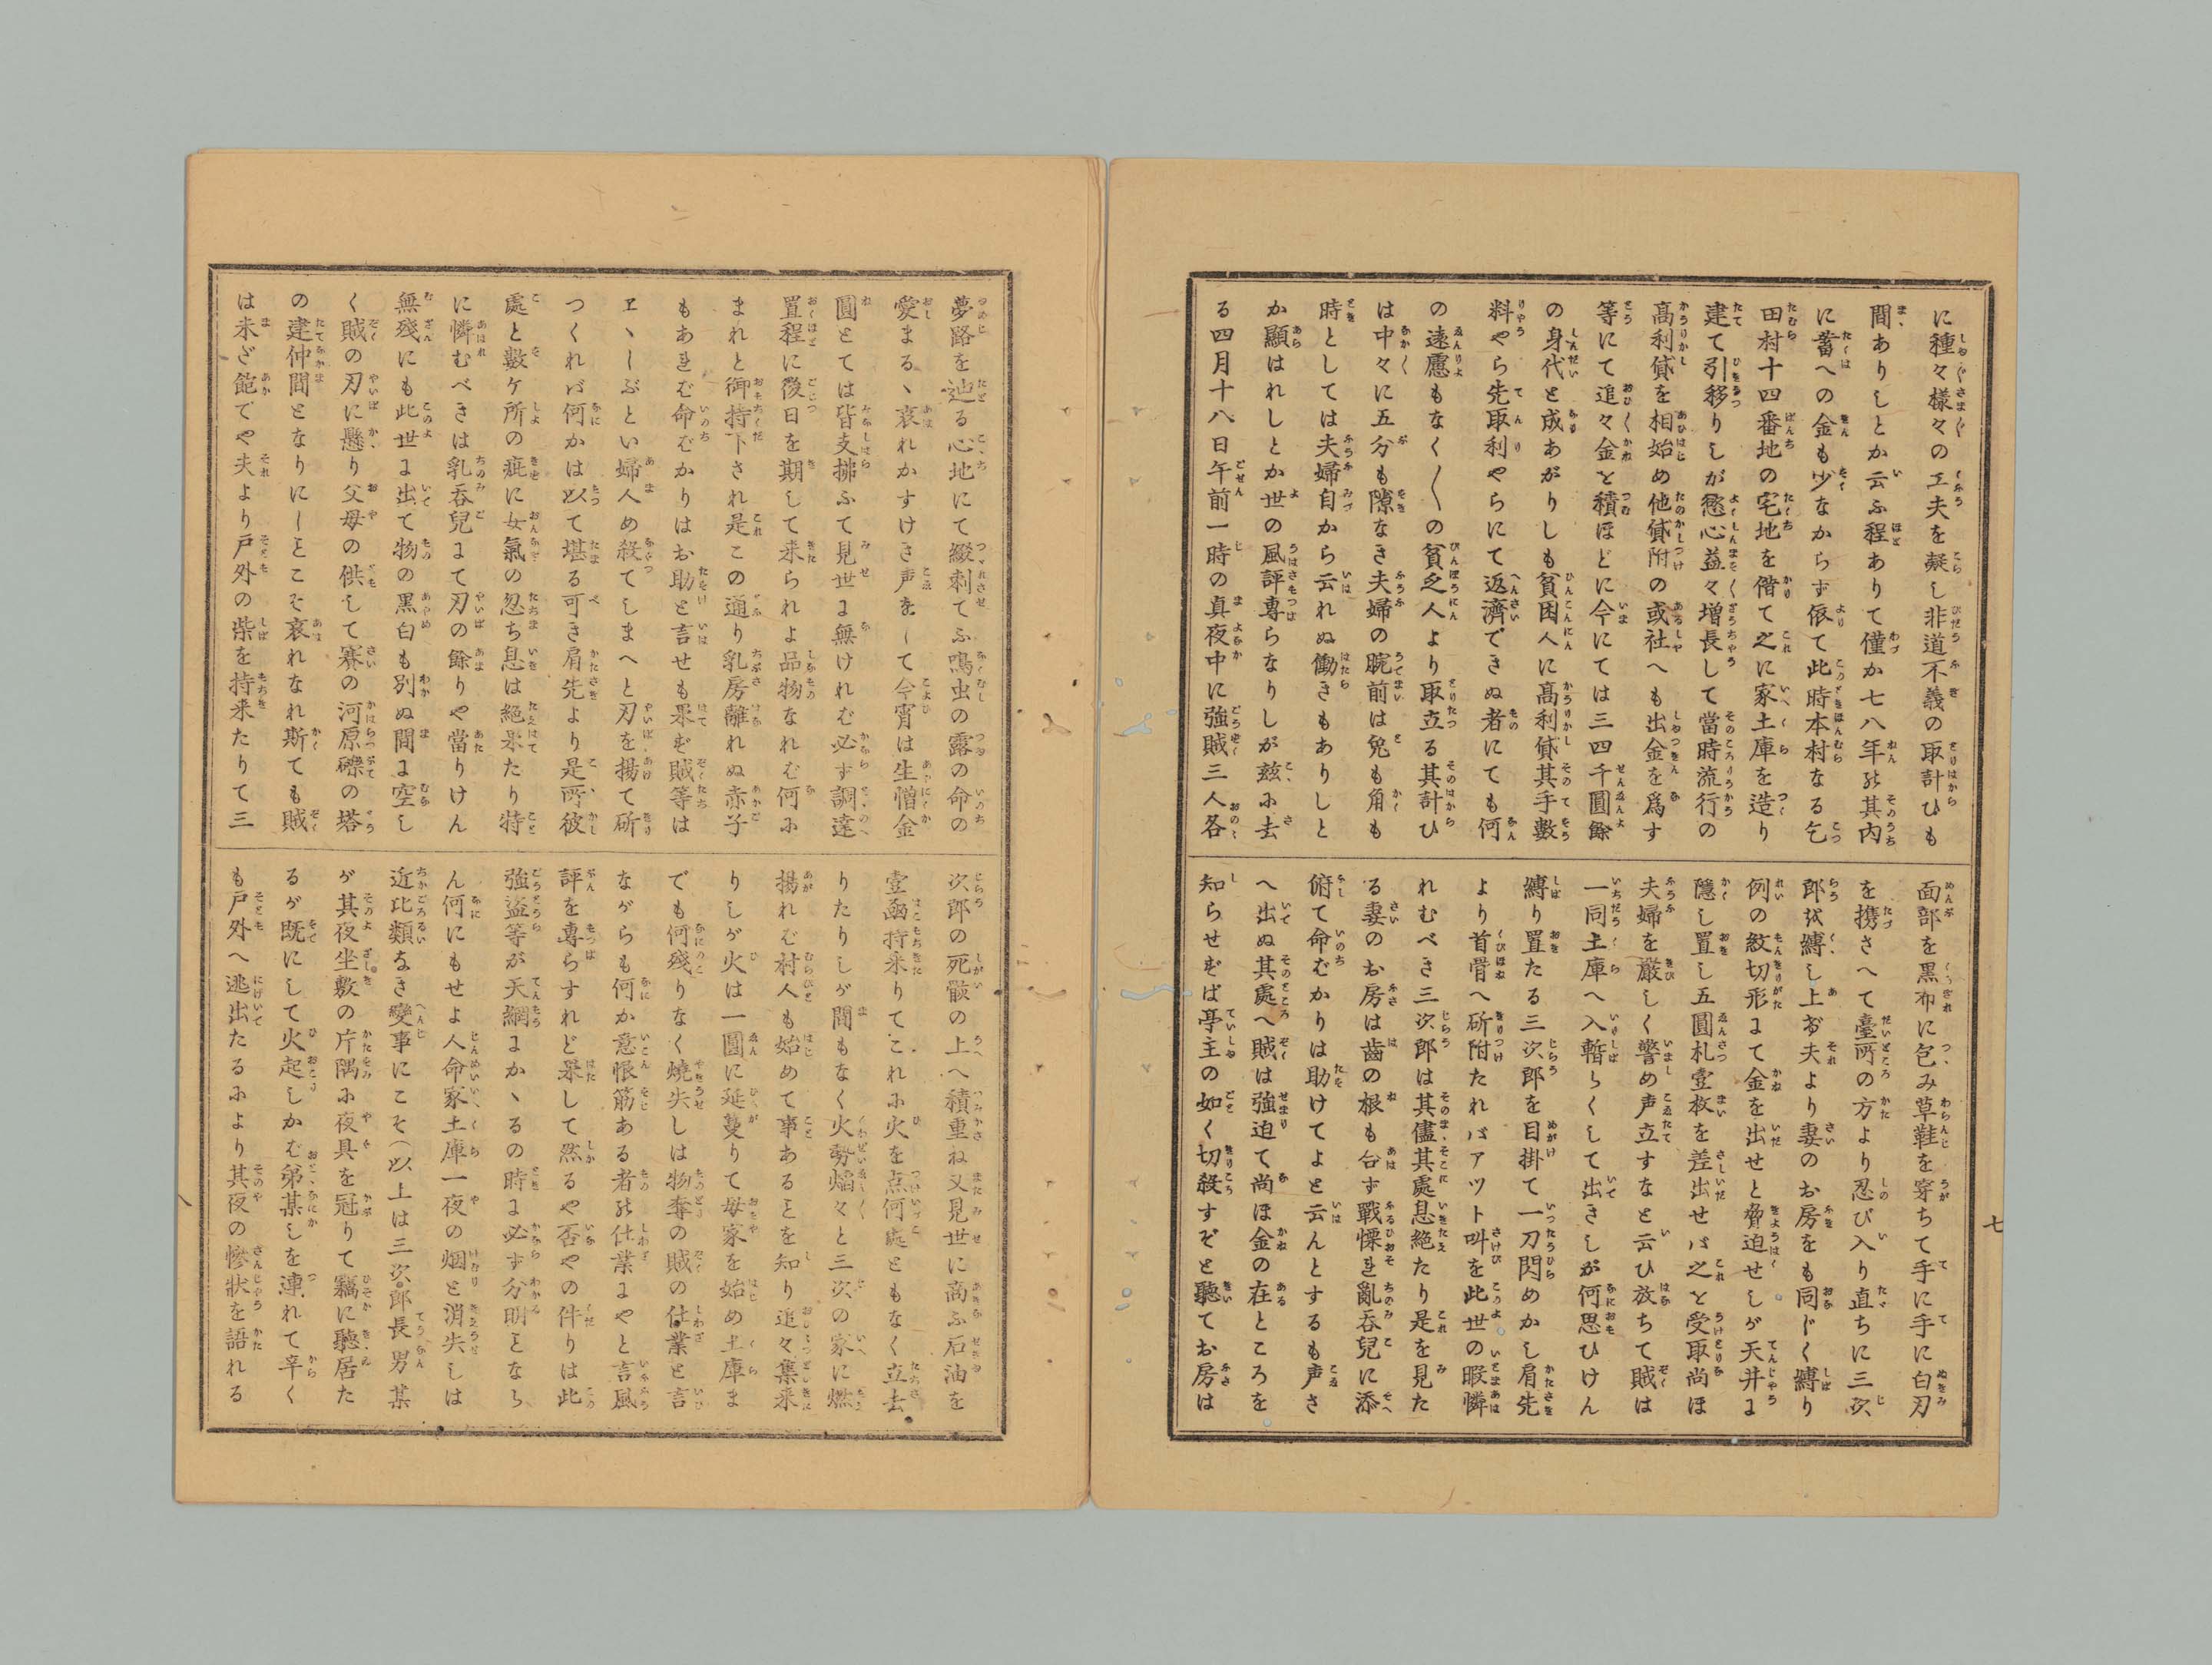 に種々樣々の工夫を凝し非道不義の取計ひも
間ありしとか云ふ程ありて僅か七八年の其内
に蓄への金も少なからず依て此時本村なる乞
田村十四番地の宅地を借て之に家土庫を造り
建て引移りしが慾心益々増長して當時流行の
高利貸を相始め他貸附の或社へも出金を爲す
等にて追々金を積ほどに今にては三四千圓餘
の身代と成あがりしも貧困人に高利貸其手數
料やら先取利やらにて返濟できぬ者にても何
の遠慮もなく〳〵の貧乏人より取立る其計ひ
は中々に五分も隙なき夫婦の腕前は兎も角も
時としては夫婦自から云れぬ働きもありしと
か顯はれしとか世の風評專らなりしが玆に去
る四月十八日午前一時の真夜中に強賊三人各
面部を黒布に包み草鞋を穿ちて手に手に白刃
を携さへて臺所の方より忍び入り直ちに三次
郎を縛し上げ夫より妻のお房をも同じく縛り
例の紋切形にて金を出せと脅迫せしが天井に
隱し置し五圓札壹枚を差出せば之を受取尚ほ
夫婦を嚴しく警め声立すなと云ひ放ちて賊は
一同土庫へ入暫らくして出きしが何思ひけん
縛り置たる三次郎を目掛て一刀閃めかし肩先
より首骨へ斫附たればアツト叫を此世の暇憐
れむべき三次郎は其儘其處息絶たり是を見た
る妻のお房は齒の根も合す戰慄き亂呑兒に添
俯て命むかりは助けてよと云んとするも声さ
へ出ぬ其處へ賊は強迫て尚ほ金の在ところを
知らせずば亭主の如く切殺すぞと聽てお房は
七
夢路を辿る心地にて綴刺てふ鳴虫の露の命の
愛まるゝ哀れかすけき声をして今宵は生憎金
圓とては皆支拂ふて見世に無けれむ必ず調達
置程に後日を期して来られよ品物なれむ何ふ
まれと御持下され是この通り乳房離れぬ赤子
もあきむ命むかりはお助と言せも果ず賊等は
ヱヽしぶとい婦人め殺てしまへと刃を揚て斫
つくれば何かは以て堪る可き肩先より是所彼
處と數ケ所の疵に女氣の忽ち息は絶果たり特
に憐むべきは乳呑兒まて刃の餘りや當りけん
無殘にも此世に出て物の黒白も別ぬ間に空し
く賊の刃に懸り父母の供して賽の河原礫の塔
の建仲間となりにしとこそ哀れなれ斯ても賊
は未ざ飽でや夫より戸外の柴を持来たりて三
次郎の死骸の上へ積重ね又見世に商ふ石油を
壹凾持来りてこれふ火を点何處ともなく立去
りたりしが間もなく火勢熖々と三次の家に燃
揚れむ村人も始めて事あるとを知り追々集来
りしが火は一圓に延蔓りて母家を始め土庫ま
でも何殘りなく燒失しは物奪の賊の仕業と言
ながらも何か意恨筋ある者の仕業にやと言風
評を專らすれど果して然るや否やの件りは此
強盗等が天網にかゝるの時に必ず分明となら
ん何にもせよ人命家土庫一夜の烟と消失しは
近比類なき變事にこそ（以上は三次郎長男某
が其夜坐敷の片隅ふ夜具を冠りて竊に聽居た
るが既にして火起しかむ弟某しを連れて辛く
も戸外へ逃出たるふより其夜の慘狀を語れる